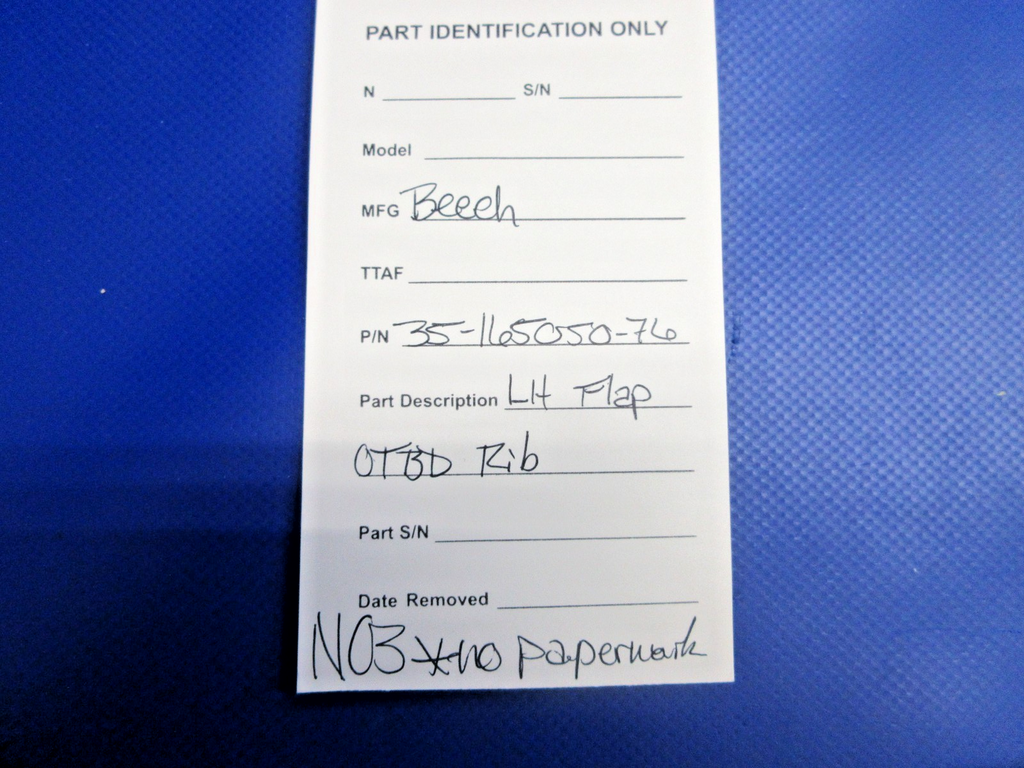 PART IDENTIFICATION ONLY
N S/N
Model
MFG Beech
TTAF
P/N 35-165050-76
Part Description LH Flap
OTBD Rib
Part S/N
Date Removed
N03 *no paperwork